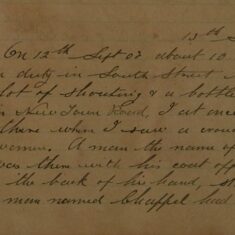 13th S
On 12th Sept 07 about 10
n duty in South Street
lot of shouting & a bottle
in New Town Road, I at once
there when I saw a crow
women. A man the name of
was there with his coat off
the back of his hand, st
man named Chappel had